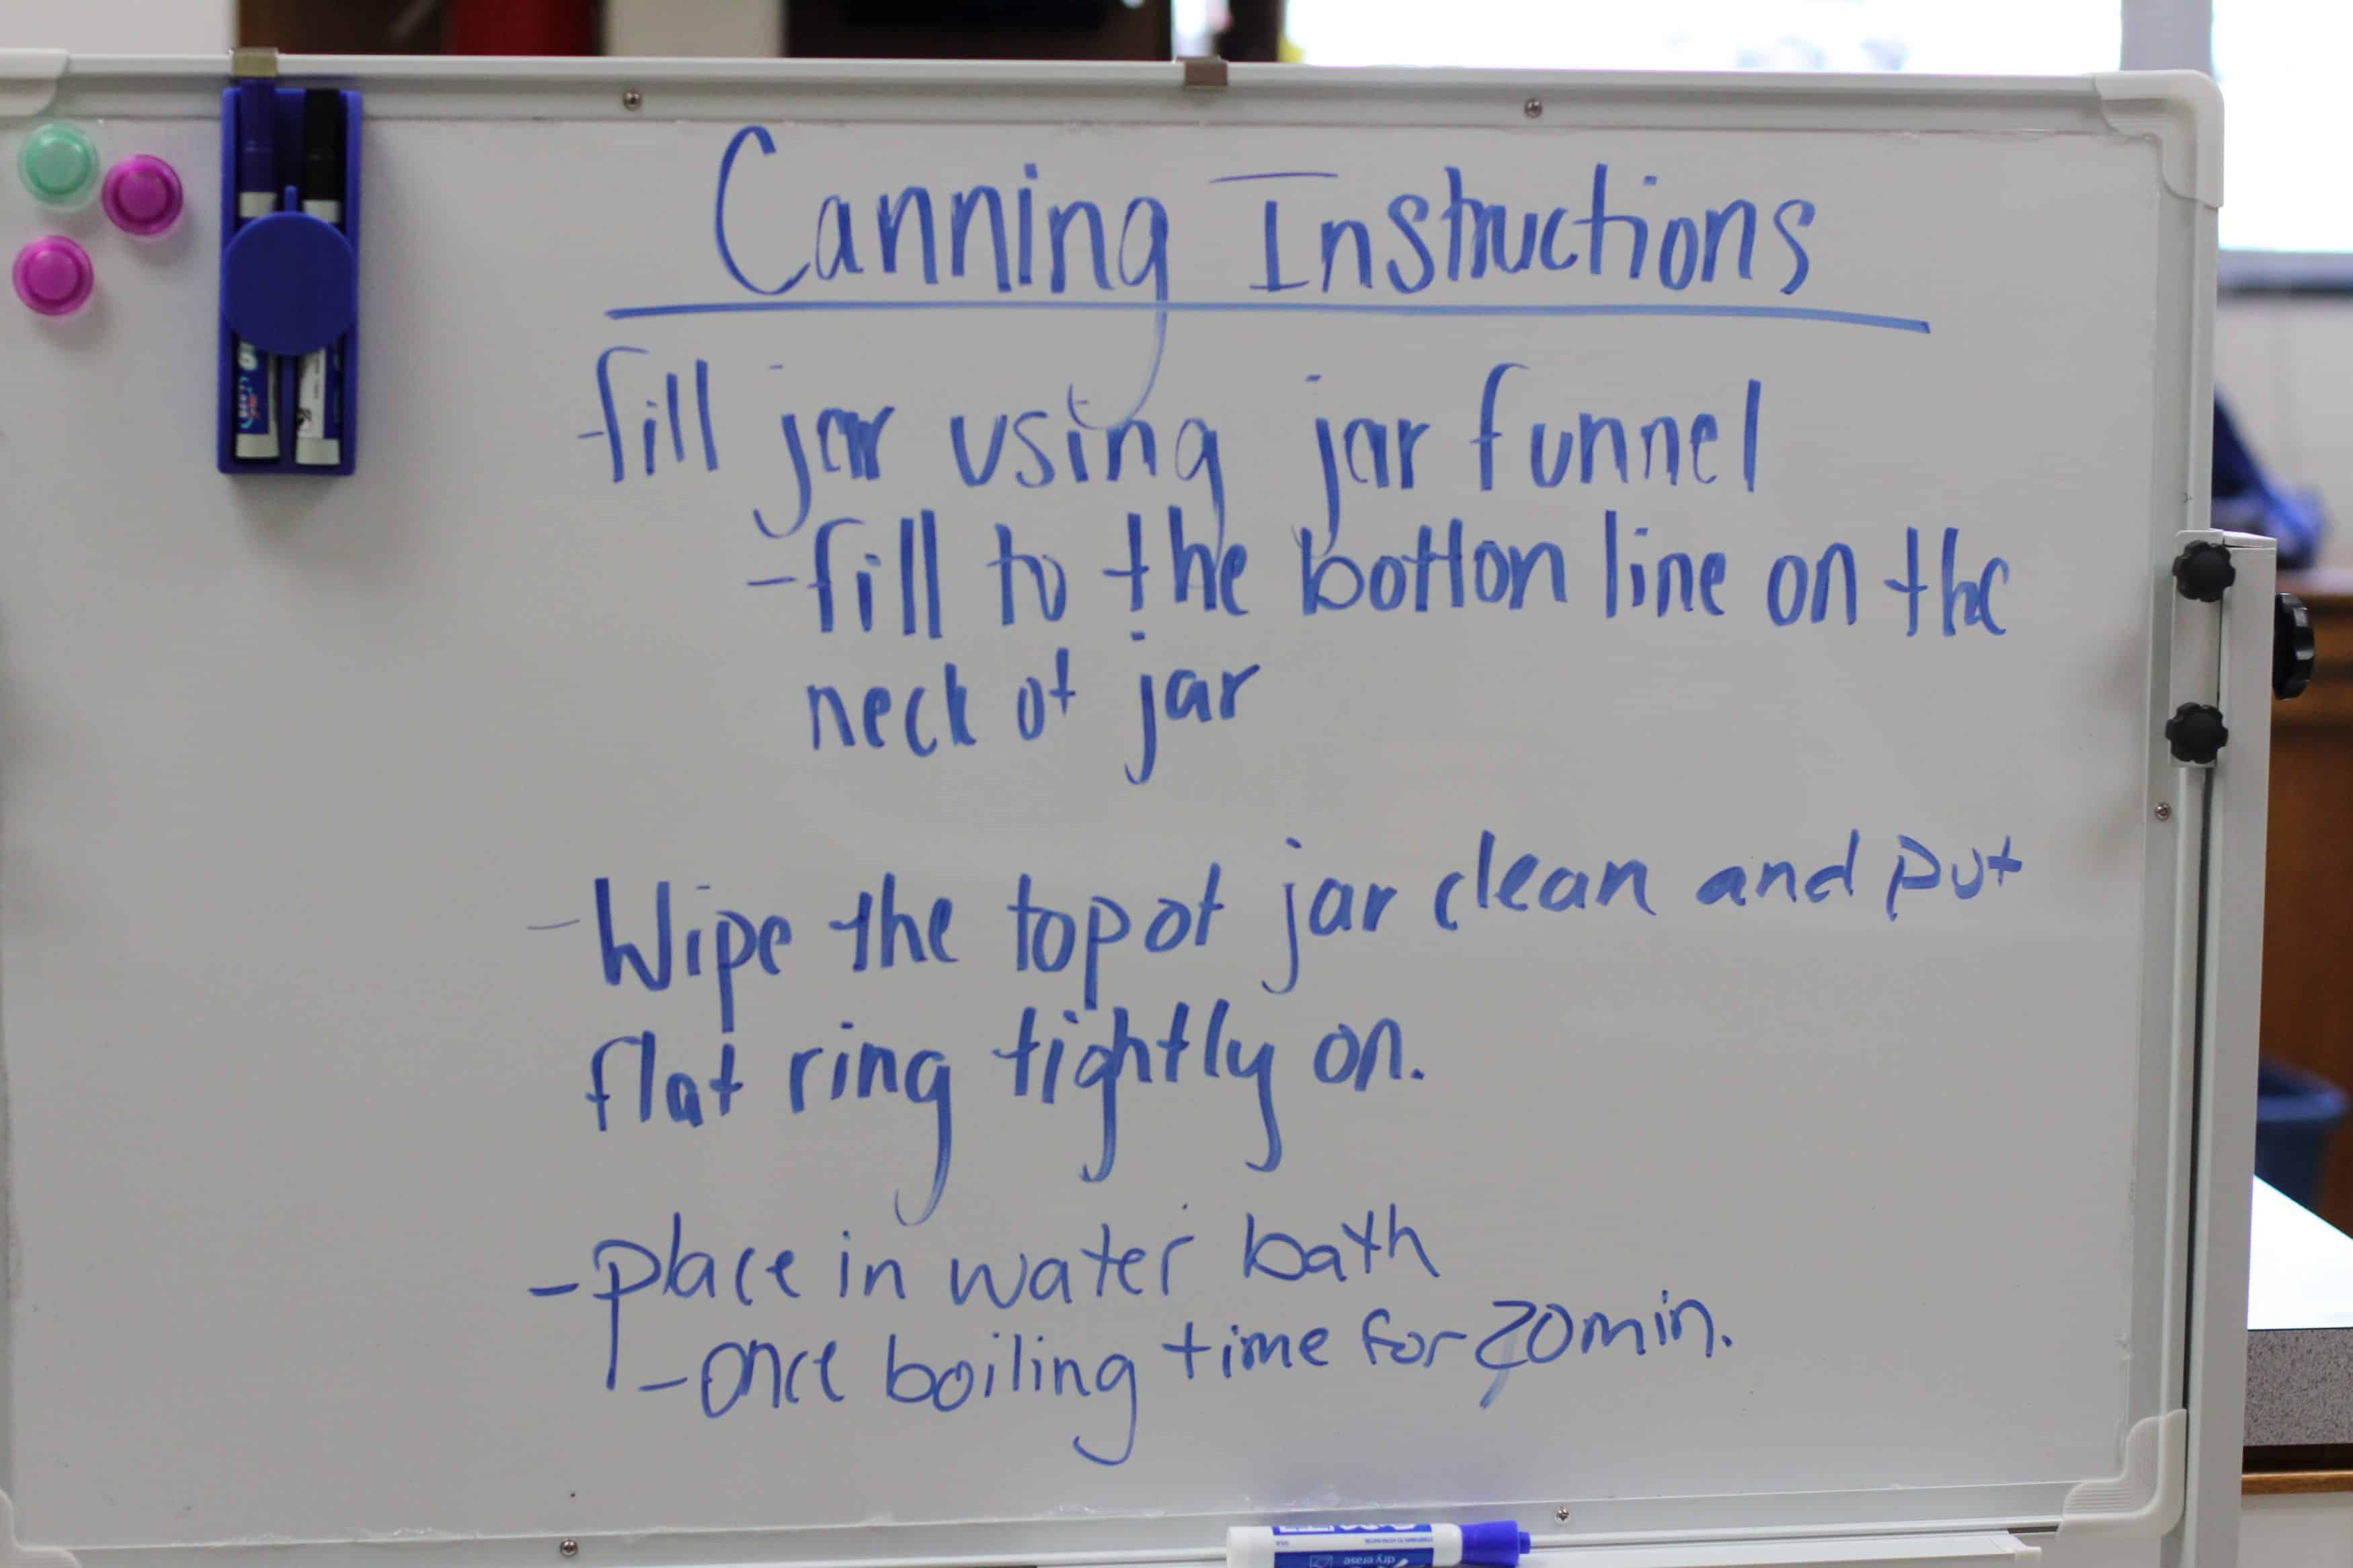 Canning Instructions
-fill jar using jar funnel
-fill to the botton line on the
neck of jar
-Wipe the top of jar clean and put
flat ring tightly on.
-place in water bath
-once boiling time for 20min.
dry erase